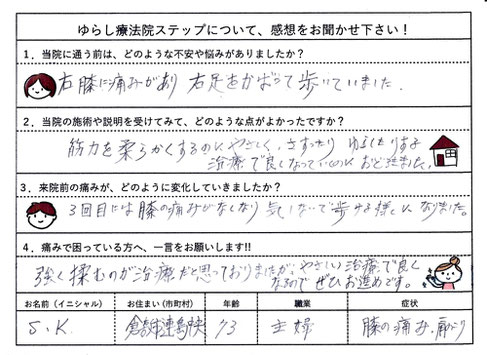 ゆらし療法院ステップについて、感想をお聞かせ下さい！
1．当院に通う前は、どのような不安や悩みがありましたか？
右膝に痛みがあり 右足をかばって歩いていました．
2．当院の施術や説明を受けてみて、どのような点がよかったですか？
筋力を柔らかくするのに やさしく、さすったり ゆらしたりする
治療で良くなっていくのに おどろきました。
3．来院前の痛みが、どのように変化していきましたか？
3回目には膝の痛みがなくなり 気にしないで歩ける様になりました。
4．痛みで困っている方へ、一言をお願いします!!
強く揉むのが治療だと思っておりましたが、やさしい治療で良く
なるので ぜひお進めです。
お名前（イニシャル） お住まい（市町村） 年齢 職業 症状
S．K． 倉敷市連島 73 主婦 膝の痛み．肩こり